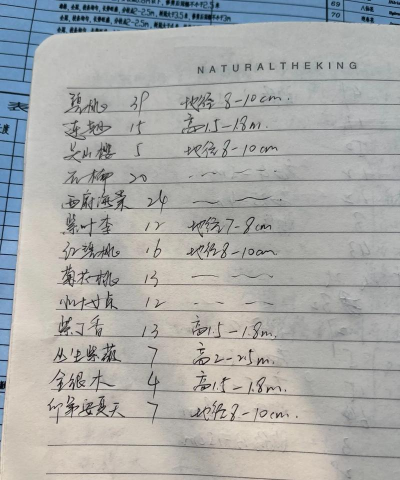 69
70
表
NATURALTHEKING
碧桃 39 地径8-10cm.
连翘 15 高1.5-1.8m.
关山樱 5 地径8-10cm
石榴 20 — ~ ~
西府海棠 24 ~ ~
紫叶李 12 地径7-8cm
红碧桃 16 地径8-10cm.
菊花桃 13 — ~
12 — ~
紫丁香 13 高1.5-1.8m.
丛生紫薇 7 高2-2.5m.
金银木 4 高1.5-1.8m.
印第安夏天 7 地径8-10cm.